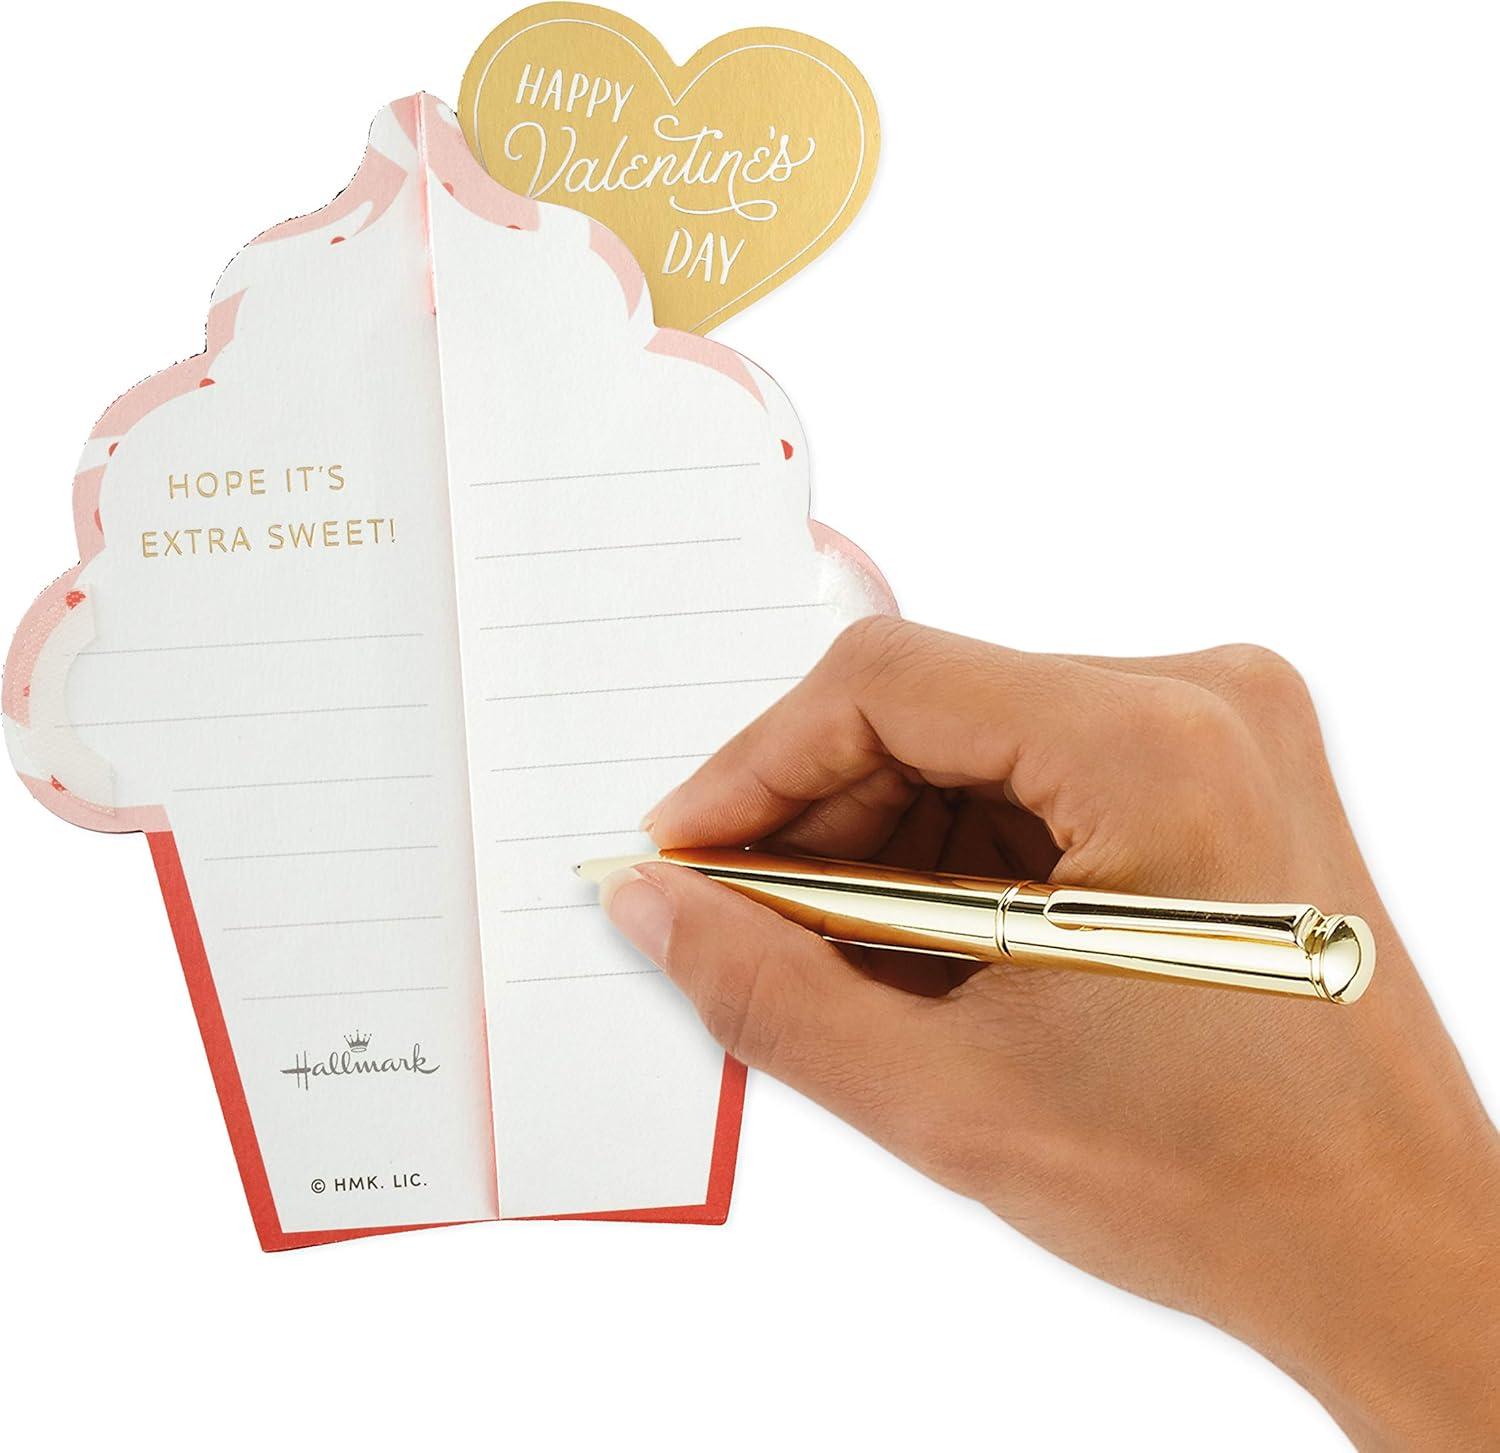 HAPPY
Valentine's
DAY
HOPE IT'S
EXTRA SWEET!
Hallmark
© HMK. LIC.